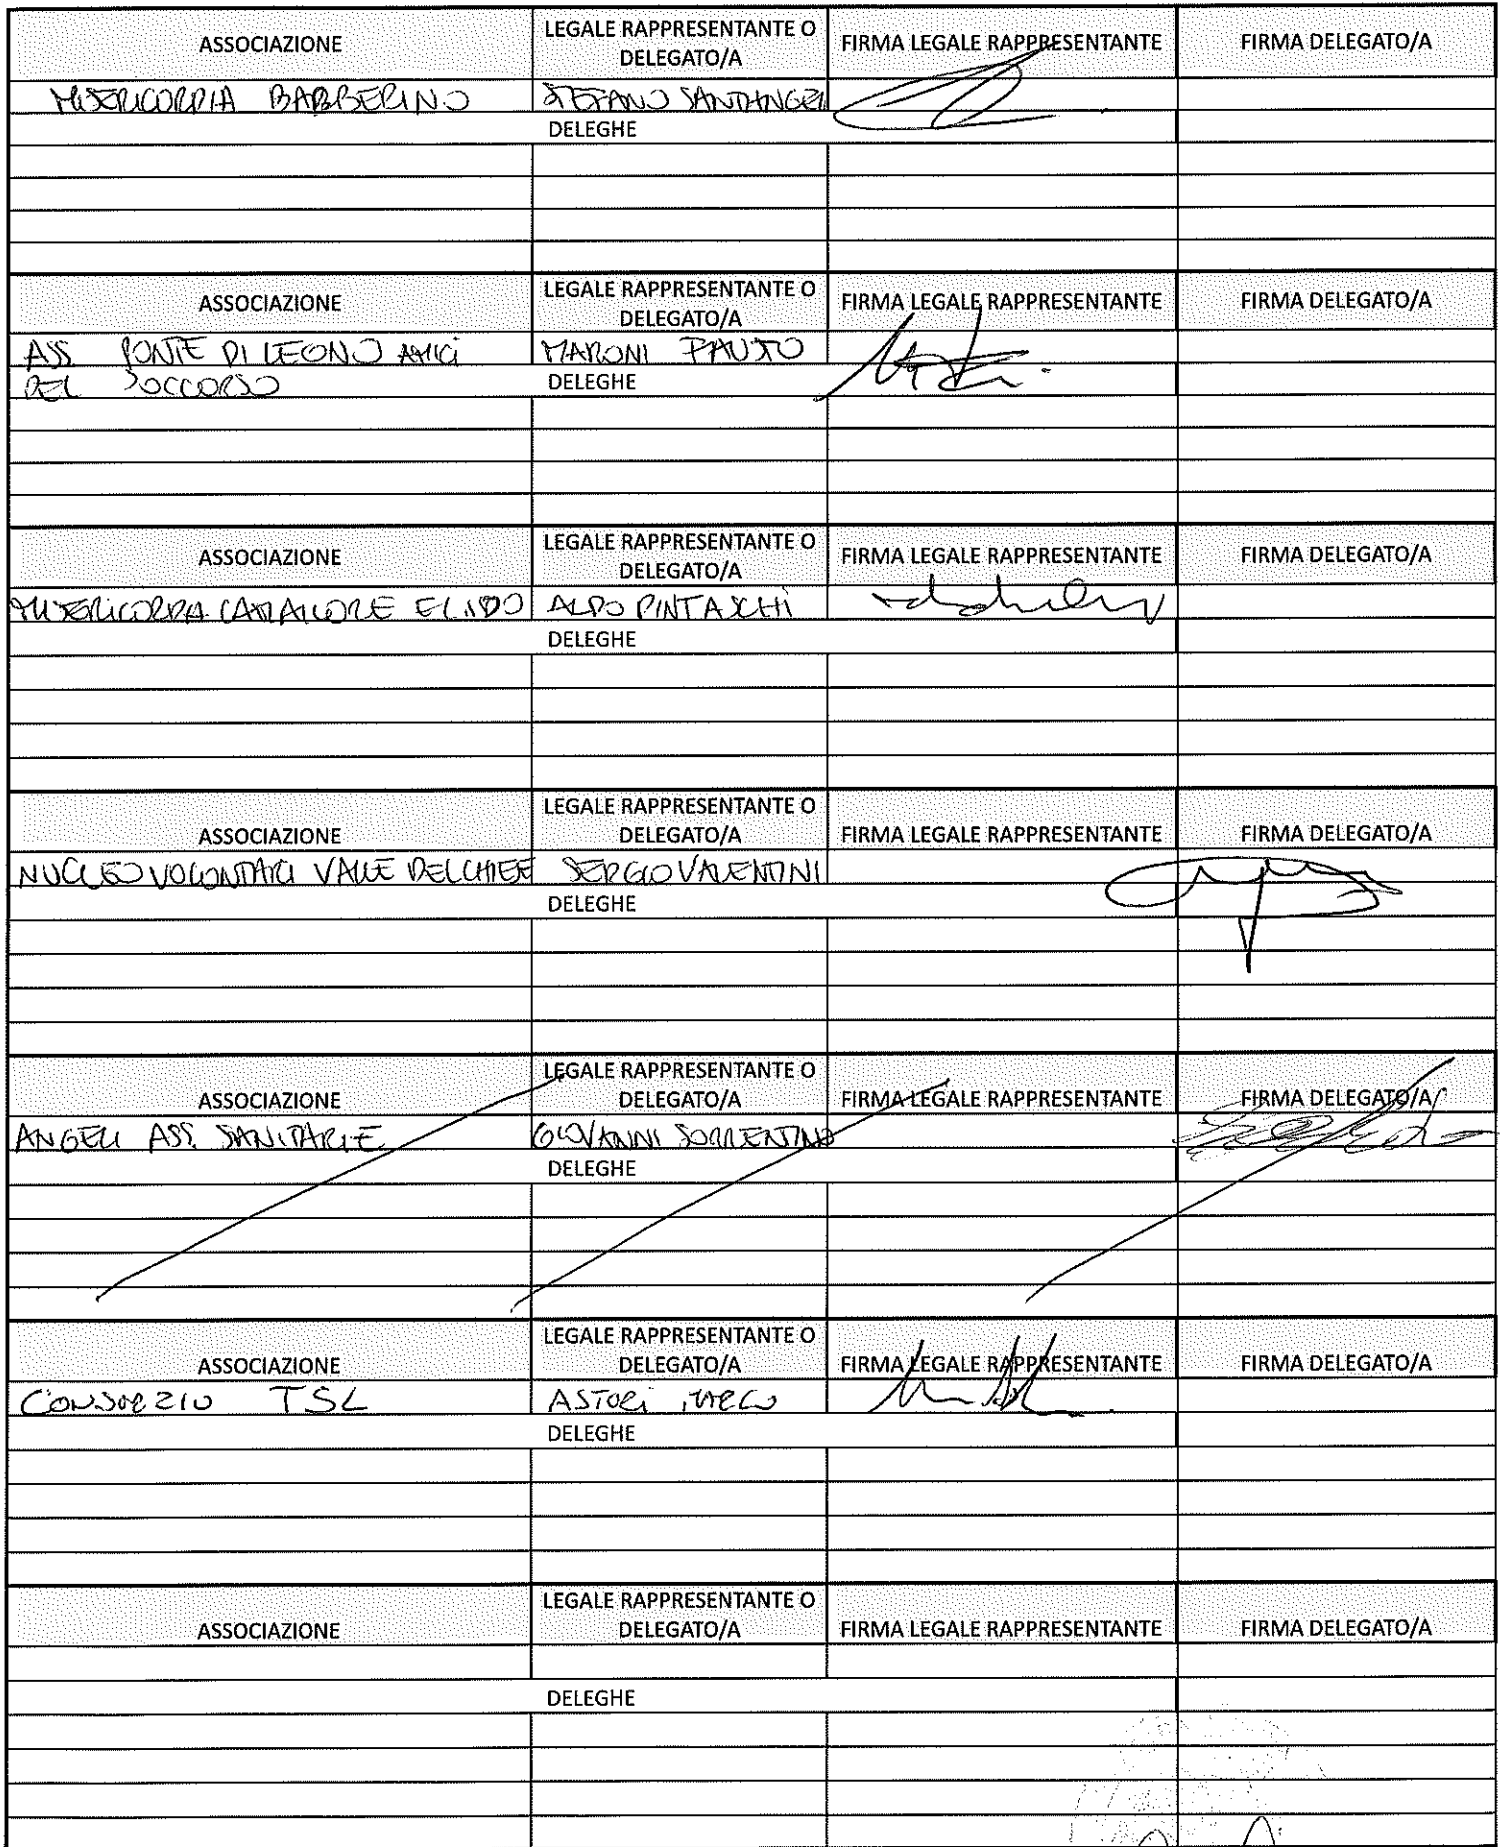 ASSOCIAZIONE LEGALE RAPPRESENTANTE O DELEGATO/A FIRMA LEGALE RAPPRESENTANTE FIRMA DELEGATO/A
MISERICORDIA BARBERINO STEFANO SANTANGELI
DELEGHE
ASSOCIAZIONE LEGALE RAPPRESENTANTE O DELEGATO/A FIRMA LEGALE RAPPRESENTANTE FIRMA DELEGATO/A
ASS. PONTE DI LEGNO AMICI MARONI FAUSTO
DEL SOCCORSO DELEGHE
ASSOCIAZIONE LEGALE RAPPRESENTANTE O DELEGATO/A FIRMA LEGALE RAPPRESENTANTE FIRMA DELEGATO/A
MISERICORDIA CAMAIORE E LIDO ALDO PINTASCHI
DELEGHE
ASSOCIAZIONE LEGALE RAPPRESENTANTE O DELEGATO/A FIRMA LEGALE RAPPRESENTANTE FIRMA DELEGATO/A
NUCLEO VOLONTARI VALLE DEL CHIESE SERGIO VALENTINI
DELEGHE
ASSOCIAZIONE LEGALE RAPPRESENTANTE O DELEGATO/A FIRMA LEGALE RAPPRESENTANTE FIRMA DELEGATO/A
ANGELI ASS. SANITARIE GIOVANNI SORRENTINO
DELEGHE
ASSOCIAZIONE LEGALE RAPPRESENTANTE O DELEGATO/A FIRMA LEGALE RAPPRESENTANTE FIRMA DELEGATO/A
CONSORZIO TSL ASTORI MARCO
DELEGHE
ASSOCIAZIONE LEGALE RAPPRESENTANTE O DELEGATO/A FIRMA LEGALE RAPPRESENTANTE FIRMA DELEGATO/A
DELEGHE